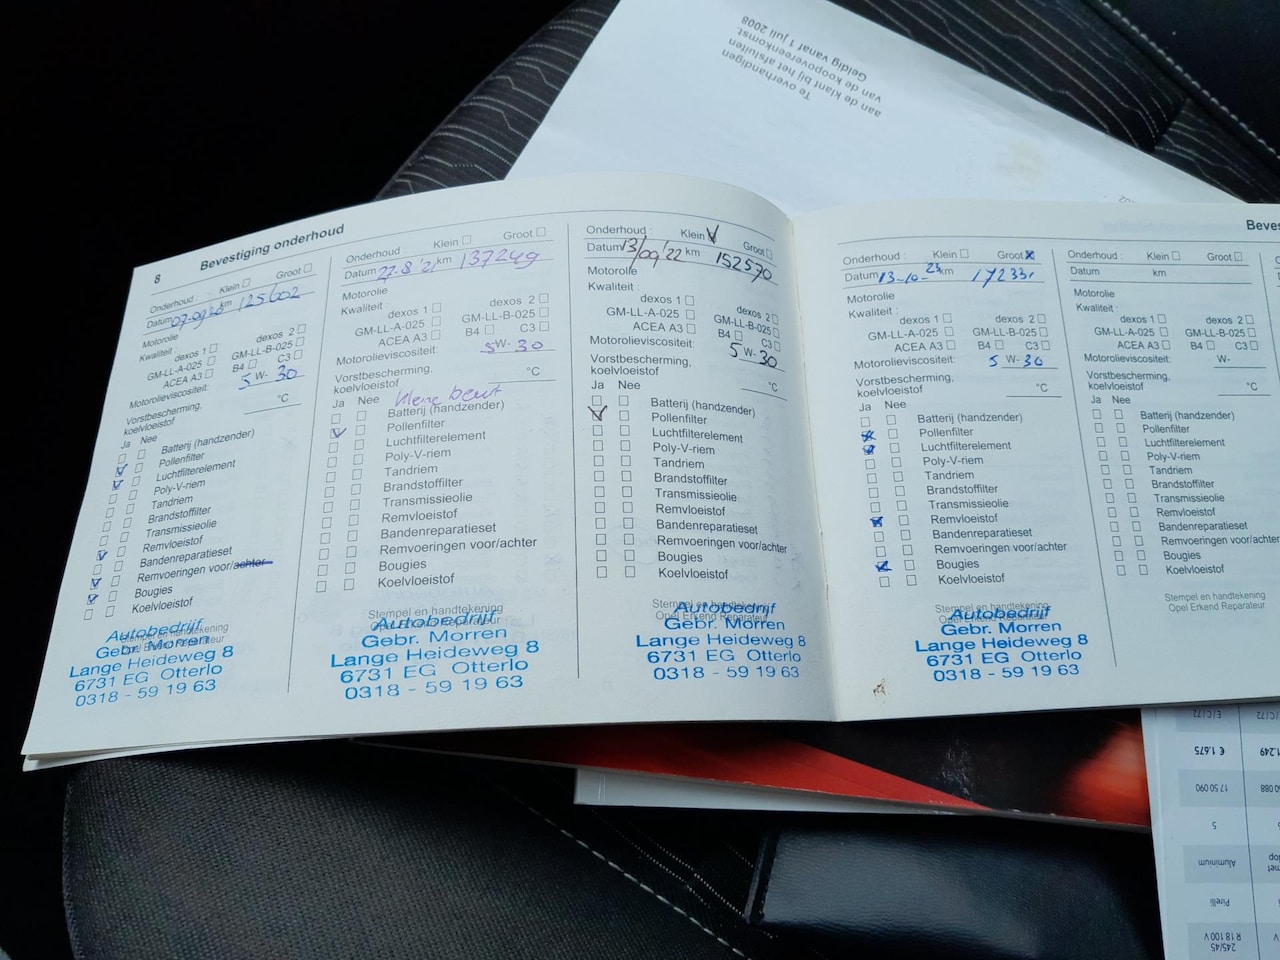 Te overhandigen
aan de klant bij het afsluiten
van de koopovereenkomst.
Geldig vanaf 1 juli 2008
8 Bevestiging onderhoud
Onderhoud : Klein Groot
Datum 07-09-20 km 125602
Motorolie
Kwaliteit : dexos 1 dexos 2
GM-LL-A-025 GM-LL-B-025
ACEA A3 B4 C3
Motorolieviscositeit: 5 W- 30
Vorstbescherming,
koelvloeistof °C
Ja Nee
Batterij (handzender)
Pollenfilter
Luchtfilterelement
Poly-V-riem
Tandriem
Brandstoffilter
Transmissieolie
Remvloeistof
Bandenreparatieset
Remvoeringen voor/achter
Bougies
Koelvloeistof
Stempel en handtekening
Opel Erkend Reparateur
Autobedrijf
Gebr. Morren
Lange Heideweg 8
6731 EG Otterlo
0318 - 59 19 63
Onderhoud Klein Groot
Datum 27-8 '21 km 137249
Motorolie
Kwaliteit : dexos 1 dexos 2
GM-LL-A-025 GM-LL-B-025
ACEA A3 B4 C3
Motorolieviscositeit: 5 W- 30
Vorstbescherming,
koelvloeistof °C
Ja Nee Kleine beurt
Batterij (handzender)
Pollenfilter
Luchtfilterelement
Poly-V-riem
Tandriem
Brandstoffilter
Transmissieolie
Remvloeistof
Bandenreparatieset
Remvoeringen voor/achter
Bougies
Koelvloeistof
Stempel en handtekening
Opel Erkend Reparateur
Autobedrijf
Gebr. Morren
Lange Heideweg 8
6731 EG Otterlo
0318 - 59 19 63
Onderhoud : Klein Groot
Datum 13/09/'22 km 152570
Motorolie
Kwaliteit : dexos 1 dexos 2
GM-LL-A-025 GM-LL-B-025
ACEA A3 B4 C3
Motorolieviscositeit: 5 W- 30
Vorstbescherming,
koelvloeistof °C
Ja Nee
Batterij (handzender)
Pollenfilter
Luchtfilterelement
Poly-V-riem
Tandriem
Brandstoffilter
Transmissieolie
Remvloeistof
Bandenreparatieset
Remvoeringen voor/achter
Bougies
Koelvloeistof
Stempel en handtekening
Opel Erkend Reparateur
Autobedrijf
Gebr. Morren
Lange Heideweg 8
6731 EG Otterlo
0318 - 59 19 63
Onderhoud : Klein Groot
Datum 13-10-23 km
Motorolie
Kwaliteit : dexos 1 dexos 2
GM-LL-A-025 GM-LL-B-025
ACEA A3 B4 C3
Motorolieviscositeit: 5 W- 30
Vorstbescherming,
koelvloeistof °C
Ja Nee
Batterij (handzender)
Pollenfilter
Luchtfilterelement
Poly-V-riem
Tandriem
Brandstoffilter
Transmissieolie
Remvloeistof
Bandenreparatieset
Remvoeringen voor/achter
Bougies
Koelvloeistof
Stempel en handtekening
Opel Erkend Reparateur
Autobedrijf
Gebr. Morren
Lange Heideweg 8
6731 EG Otterlo
0318 - 59 19 63
Beves
Onderhoud : Klein Groot
Datum km
Motorolie
Kwaliteit : dexos 1 dexos 2
GM-LL-A-025 GM-LL-B-025
ACEA A3 B4 C3
Motorolieviscositeit: W-
Vorstbescherming,
koelvloeistof °C
Ja Nee
Batterij (handzender)
Pollenfilter
Luchtfilterelement
Poly-V-riem
Tandriem
Brandstoffilter
Transmissieolie
Remvloeistof
Bandenreparatieset
Remvoeringen voor/achter
Bougies
Koelvloeistof
Stempel en handtekening
Opel Erkend Reparateur
245/45
R18 100 V
Pirelli
Aluminium
5
17 50 090
€ 1.675
E/C/72